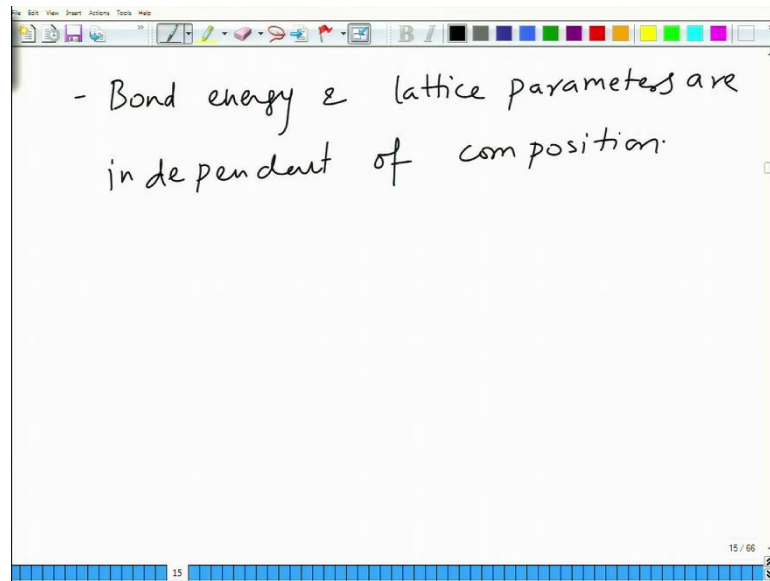 File Edit View Insert Actions Tools Help
B I
- Bond energy & lattice parameters are
independent of composition.
15 / 66
15